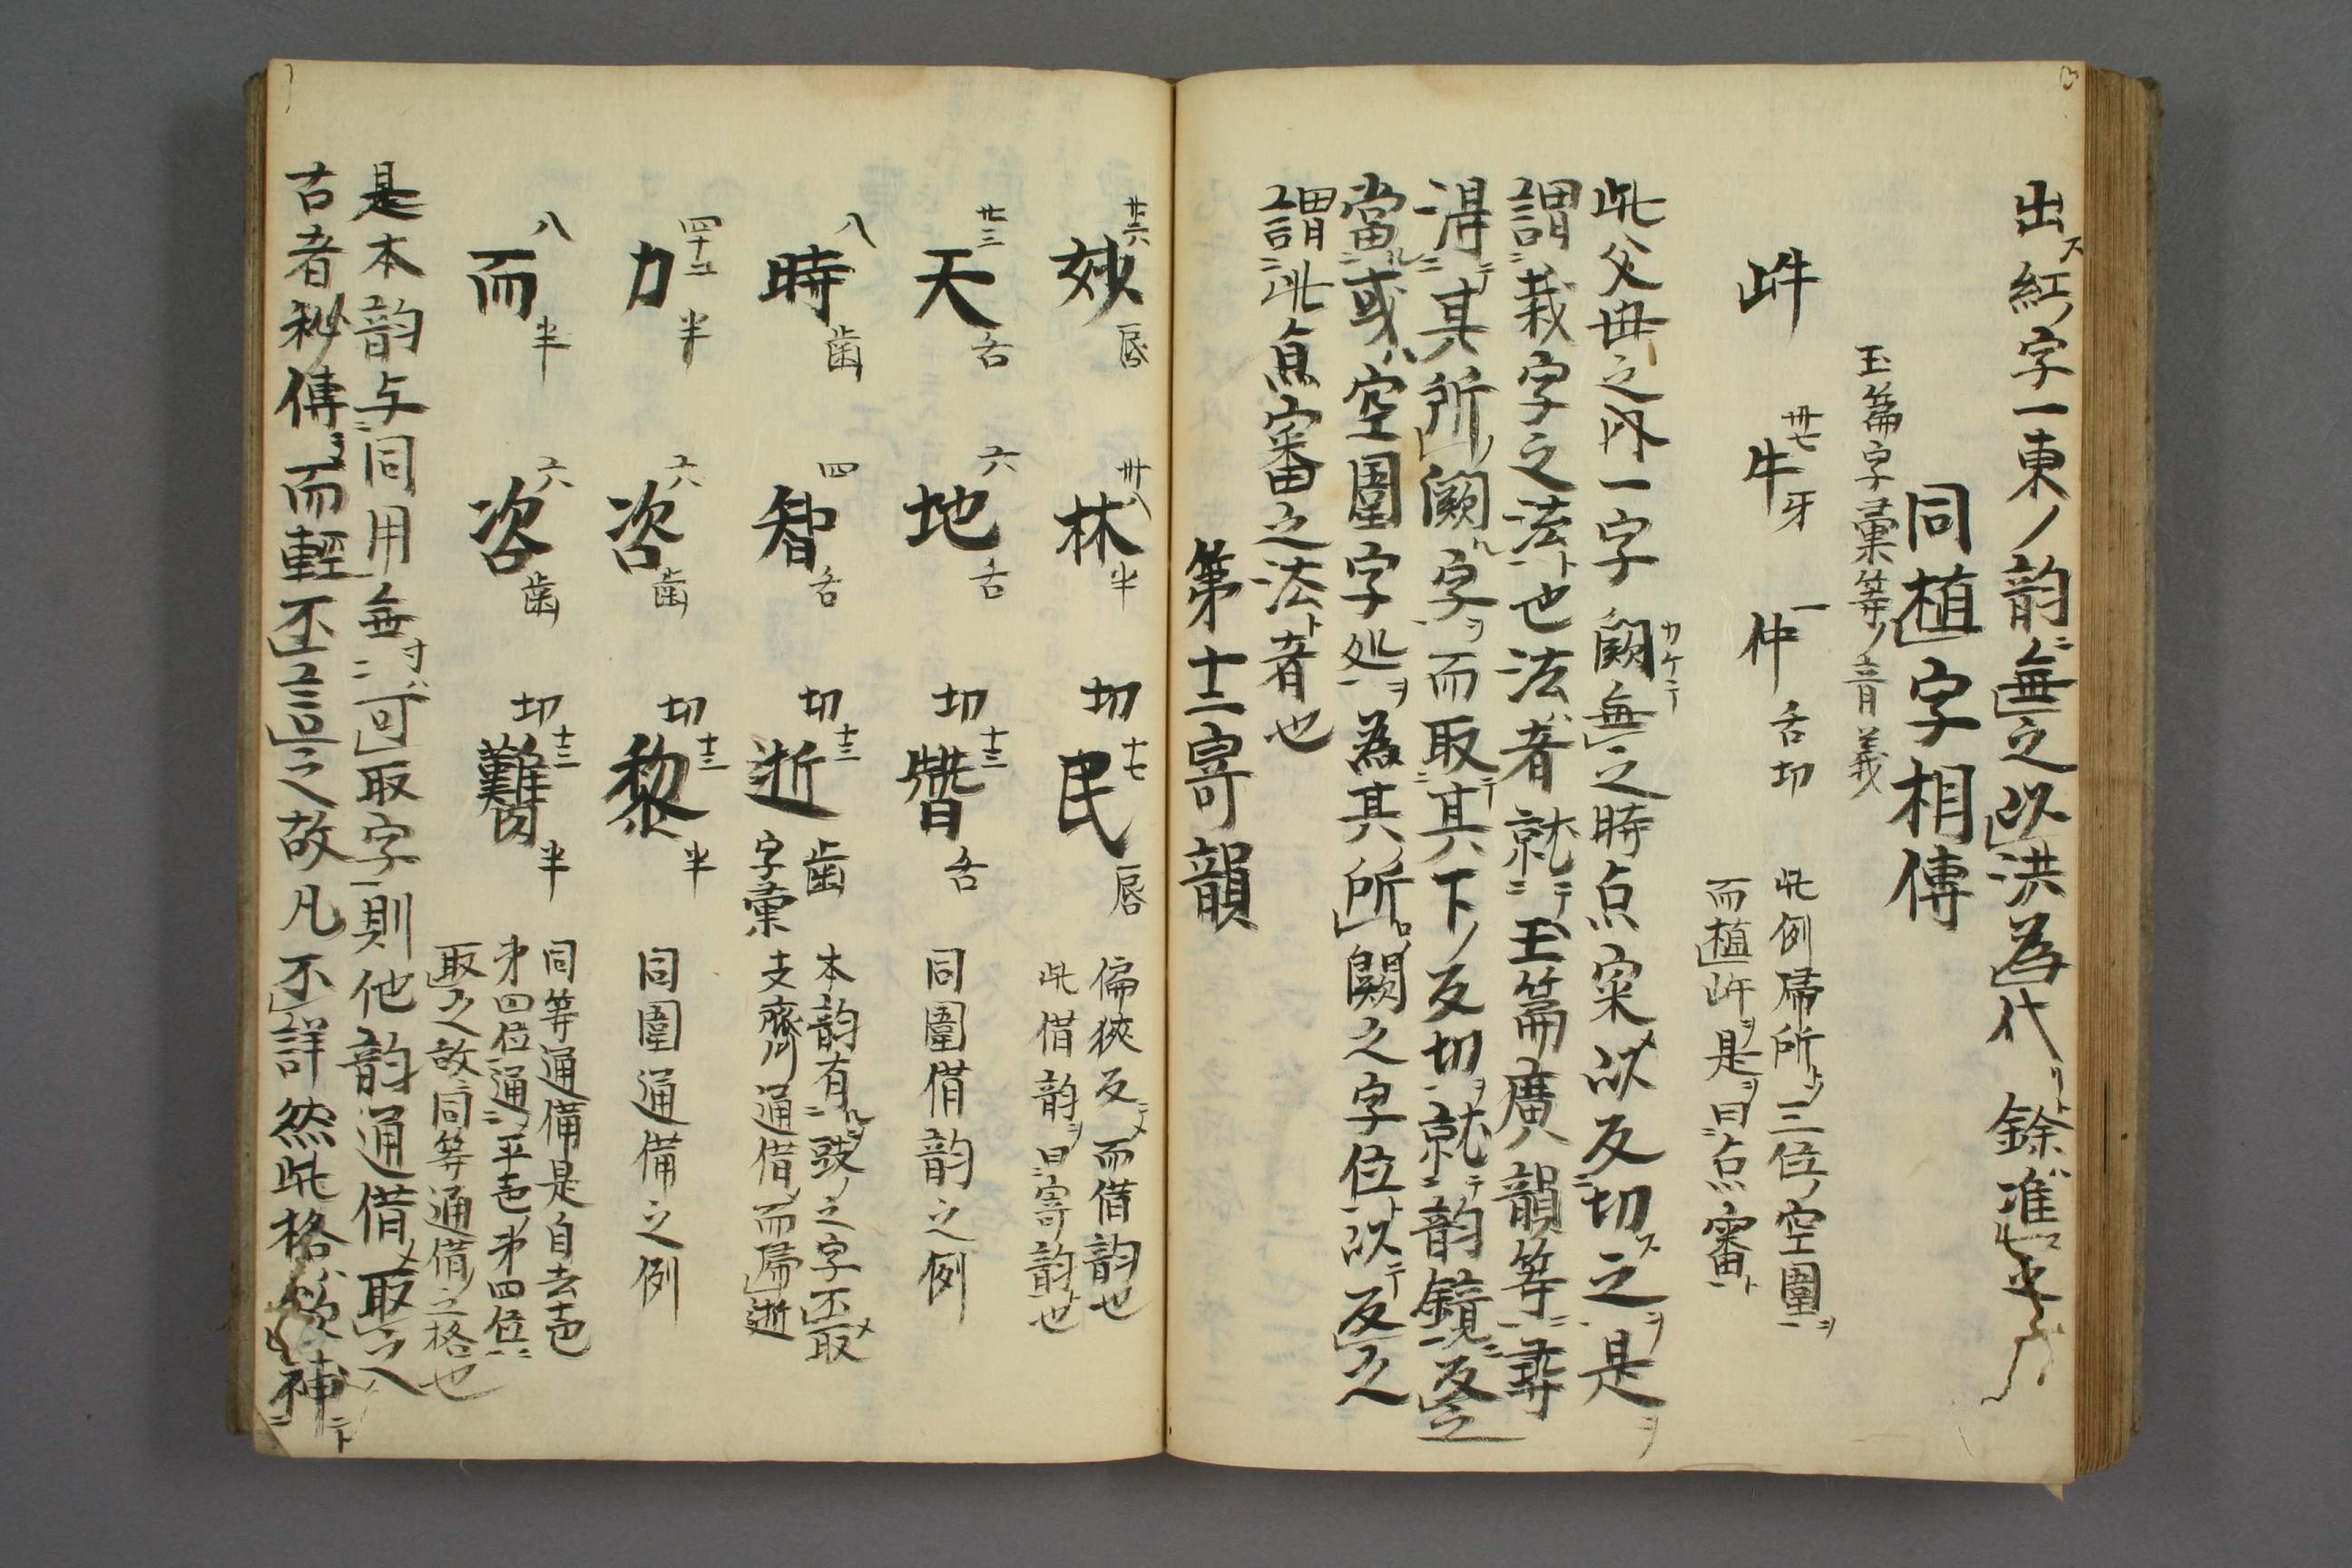 出ス紅ノ字一東ノ韵ニ無之以洪為代リト餘準也
同植字相傳
玉篇字彙等ノ音義
吽 卅七 牛 牙 一 仲 舌切
此例帰所ノ三位ノ空圍ヲ
而植吽ヲ是ヲ曰点審ト
此父母之内一字 闕カケテ 無之時点窠メ以反切ス之ヲ是ヲ
謂栽字之法ト也法者就テ玉篇廣韻等ニ尋
得テ其所闕ル字ヲ而取テ其下ノ反切ヲ就テ韵鏡ニ反之
當ル或ハ空圍字処ヲ為其所ロ闕之字位ト以テ反之
謂此点窠之法ト者也
第十二寄韻
廿六 妙 唇 卅八 林 半 切 十七 民 唇
偏狹反ニメ而借韵也
此借韵ヲ曰寄韵也
廿三 天 舌 六 地 舌 切 十三 舌
同圍借韵之例
八 時 歯 四 智 舌 切 十三 逝 歯 字彙
本韵有ル豉ノ之字不取メ
支齊通借ノ而帰逝
四十二 力 半 六 咨 歯 切 十三 黎 半
同圍通備之例
八 而 半 六 咨 歯 切 十三 半
同等通備是自去声
第四位通ニ平声第四位ニ
取之故ニ同等通借ノ之格也
是本韵与同用無寸ハ可取字則他韵通借メ取之
古者秘傳ヲ而輕不言之故凡不詳然此格欲神ニト